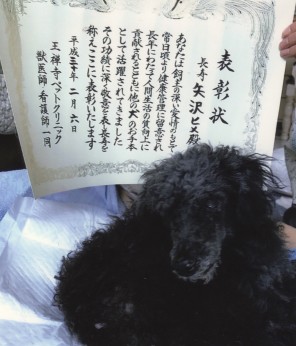 表彰状
長寿 矢沢ヒメ殿
あなたは飼主の深い愛情のもとで
常日頃より健康管理に留意され
長年にわたって人間生活の質向上に
貢献されるとともに他の犬のお手本
として活躍されてきました
その功績に深く敬意を表し長寿を
称えここに表彰いたします
平成三十年二月六日
王禅寺ペットクリニック
獣医師 看護師一同